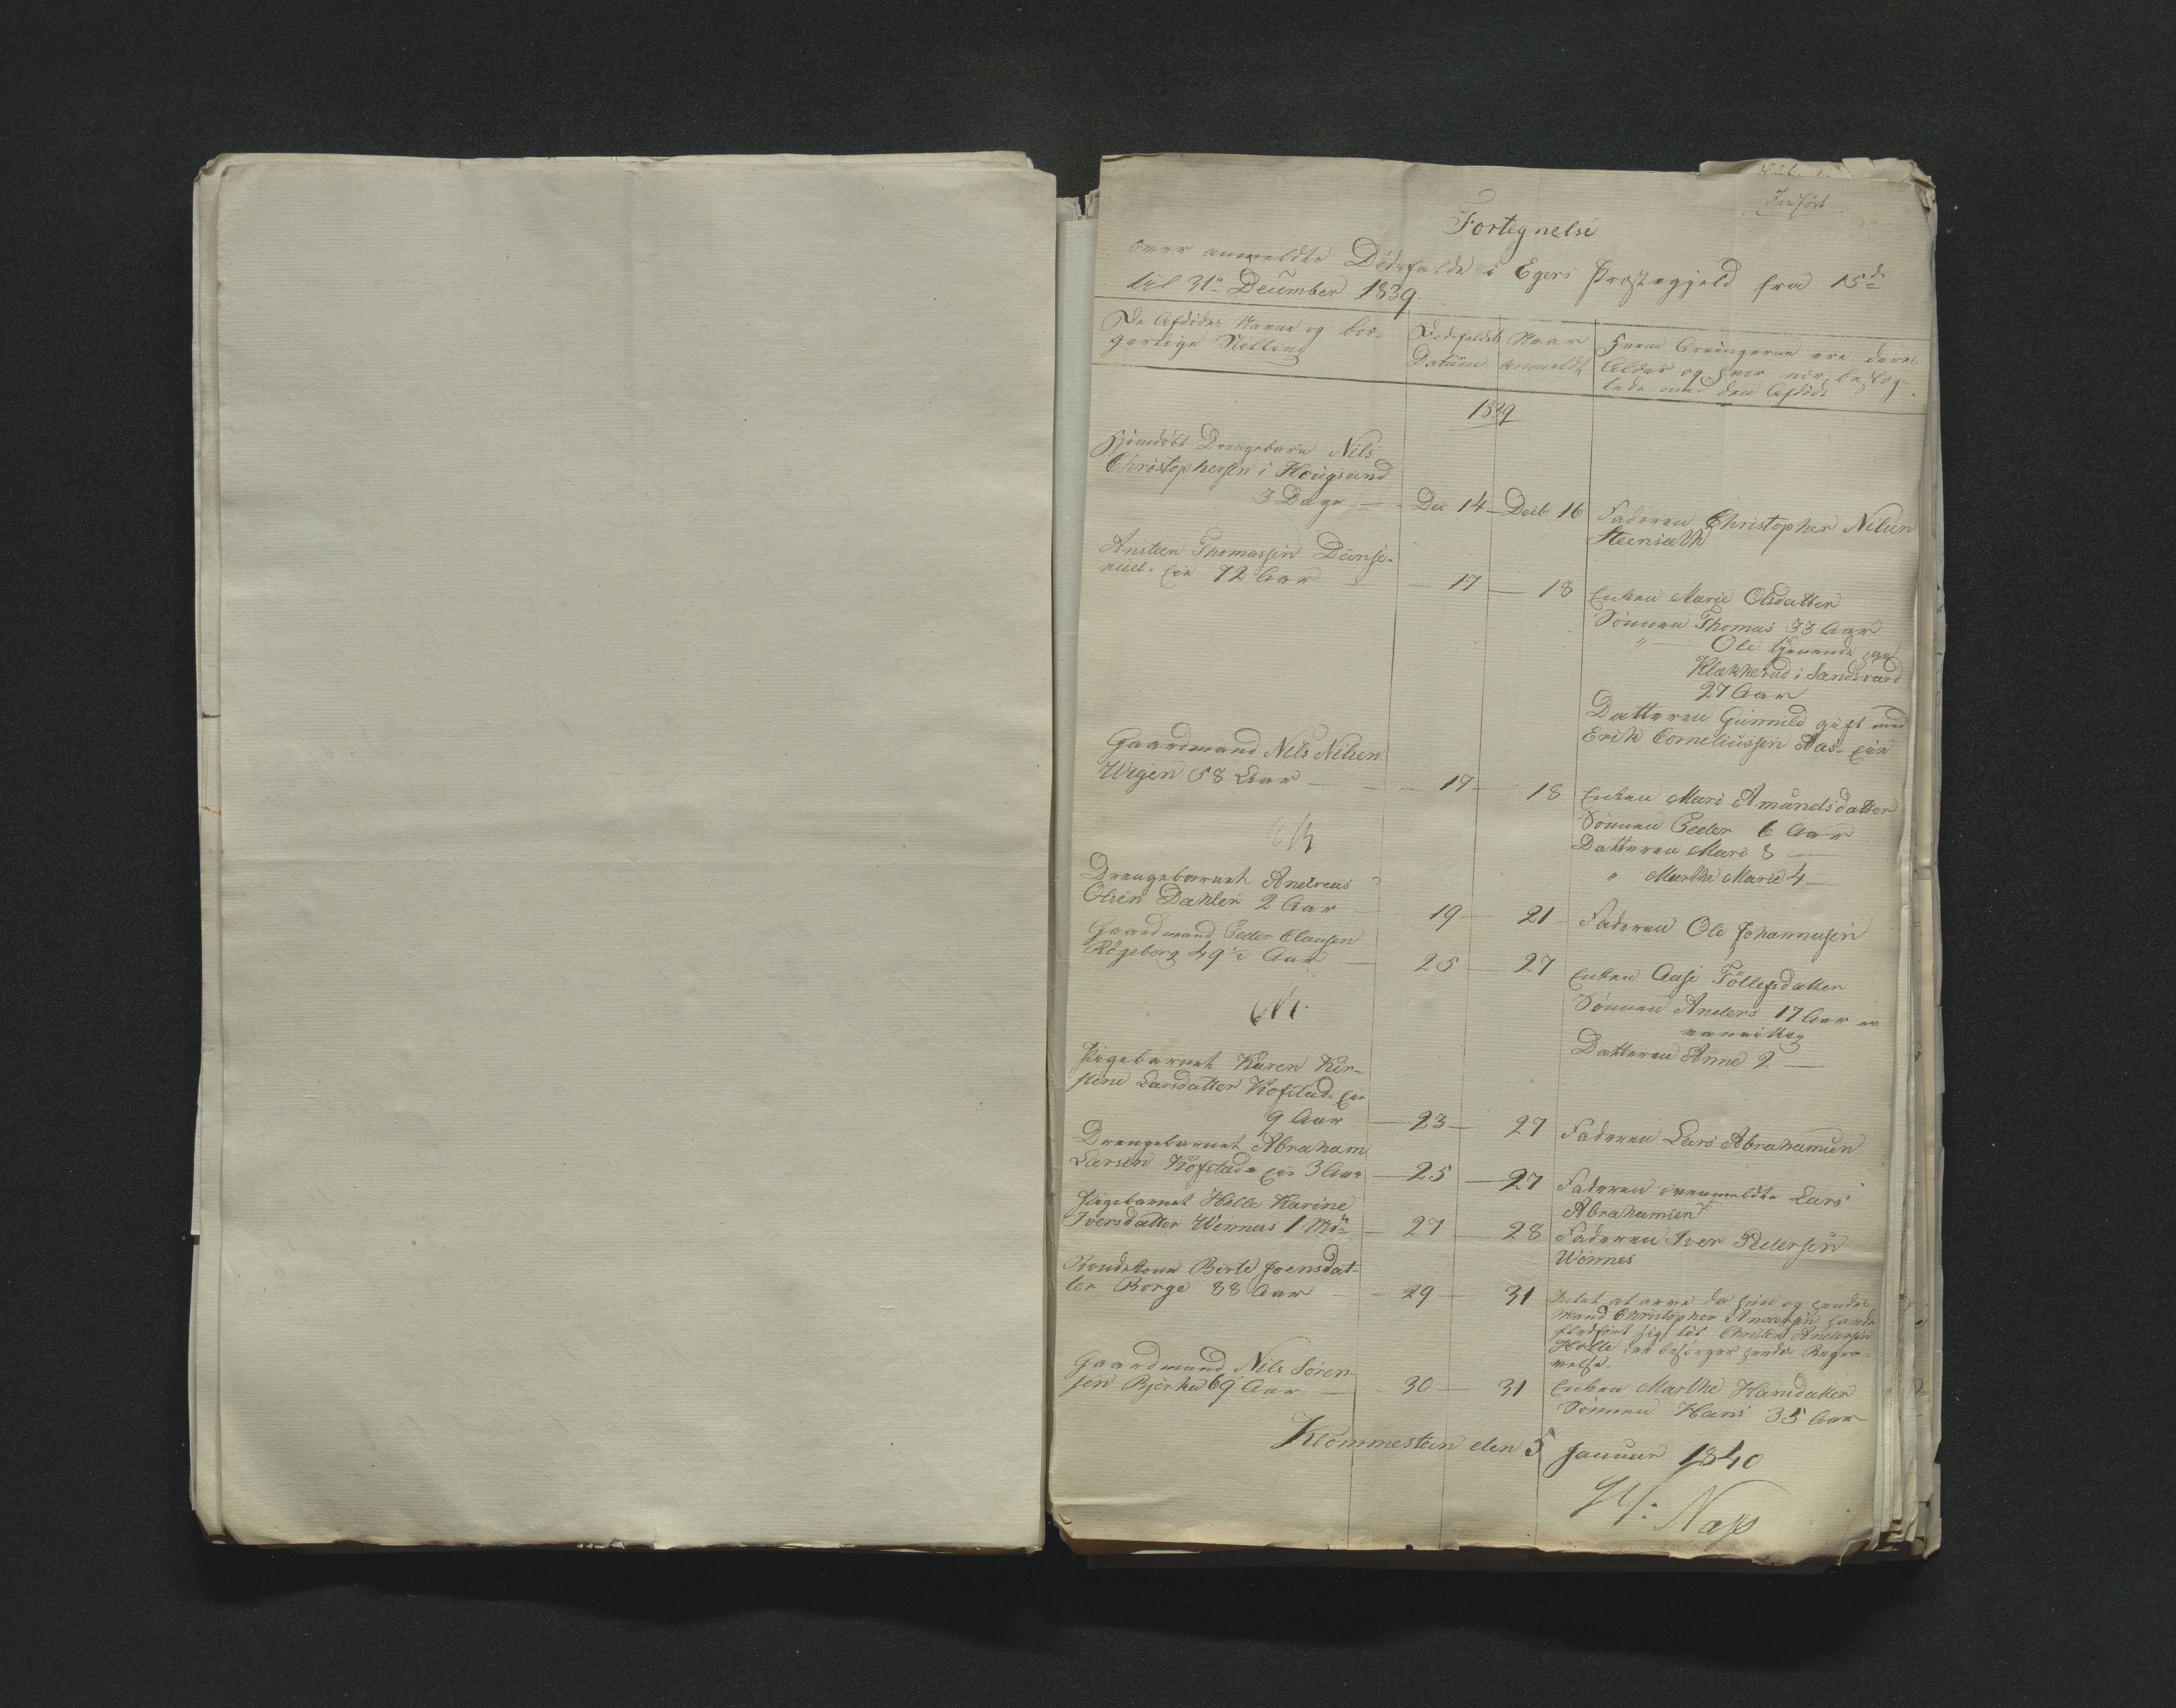 Indført
Fortegnelse
over anmeldte Dødsfalde i Egers Præstegjeld fra 15de
til 31te December 1839.
De Afdødes Navne og bor-
gerlige Stilling
Dødsfaldets
Datum
Naar
anmeldt
Hvem Arvingerne ere deres
Alder og hvor nær beslög-
tede med den Afdøde
1839
Hjemdöbt Drengebarn Nils
Christophersen i Hougsund
3 Dage — Dec 14 — Decb 16 Faderen Christopher Nilsen
Steensæth
Ansteen Thomassen Dunse-
rud- Eie 72 Aar — 17 — 18 Enken Marie Olsdatter
Sönnen Thomas 33 Aar
" Ole tjenende paa
Klækkerud i Sandsværd
27 Aar
Datteren Gunnild gift med
Erik Corneliussen Aas- Eie
Gaardmand Nils Nilsen
Wegen 58 Aar — 17 — 18 Enken Mari Amundsdatter
Sönnen Peder 6 Aar
Datteren Mari 8 —
" Marthe Marie 4 —
Drengebarnet Andreas
Olsen Dahler 2 Aar — 19 — 21 Faderen Ole Johannesen
Gaardmand Peder Clausen
Rögeberg 49½ Aar — 25 — 27 Enken Aase Töllefsdatter
Sönnen Anders 17 Aar er
vanvittig
Datteren Anne 2 —
Pigebarnet Karen Kir-
stine Larsdatter Kofstad- Eie
9 Aar — 23 — 27 Faderen Lars Abrahamsen
Drengebarnet Abraham
Larsen Kofstad- Eie 3 Aar — 25 — 27 Faderen ovenmeldte Lars
Abrahamsen
Pigebarnet Helle Karine
Iversdatter Wennes 1 Md — 27 — 28 Faderen Iver Pedersen
Wennes
Kondekone Berte Joensdat-
ter Borge 88 Aar — 29 — 31 Intet at arve da hun og hendes
Mand Christopher Andersen havde
fledført sig til Christen Andersen
Holte der besörger hendes Begra-
velse.
Gaardmand Nils Sören-
sen Bjerke 69 Aar — 30 — 31 Enken Marthe Hansdatter
Sönnen Hans 35 Aar
Klommesteen den 5 Januar 1840
Næss